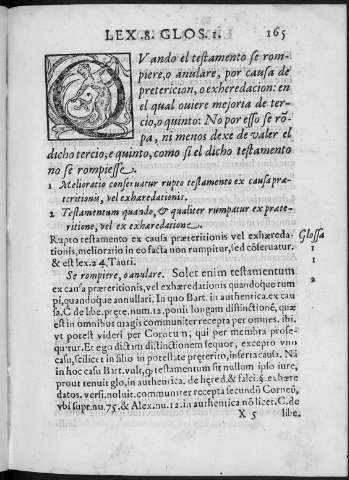 LEX .8. GLOS. 1. 165
QVando el testamento se rom-
piere, o anulare, por causa de
pretericion, o exheredacion: en
el qual ouiere mejoria de ter-
cio, o quinto: No por esso se rõ
pa, ni menos dexe de valer el
dicho tercio, e quinto, como si el dicho testamento
no se rompiesse.
1 Melioratio conseruatur rupto testamento ex causa præ-
teritionis, vel exhæredationis.
2 Testamentum quando, & qualiter rumpatur ex præte-
ritione, vel ex exhæredatione.
Rupto testamento ex causa præteritionis vel exhæreda- Glossa
tionis, melioratio in eo facta non rumpitur, sed cõseruat. 1
& est lex. 24. Tauri. 1
Se rompiere, o anulare. Solet enim testamentum
ex causa præteritionis, vel exhæredationis quandoque rum 2
pi, quandoque annullari. In quo Bart. in authentica. ex cau
sa. C. de libe. præte. num. 12. ponit longam distinctionẽ, quæ
est in omnibus magis communiter recepta per omnes. ibi.
vt potest videri per Corneum, qui per membra prose-
quitur. Et ego dictam distinctionem sequor, excepto vno
casu, scilicet in filio in potestate præterito, inserta causa. Nã
in hoc casu Bart. vult, q testamentum sit nullum ipso iure,
prout tenuit glo. in authentica. de hęred. & falci. §. exhære
datos. versi. noluit. communiter recepta secundũ Corneũ,
vbi supr. nu. 75. & Alex. nu. 12. in authentica nõ licet. C. de
X 5 libe.